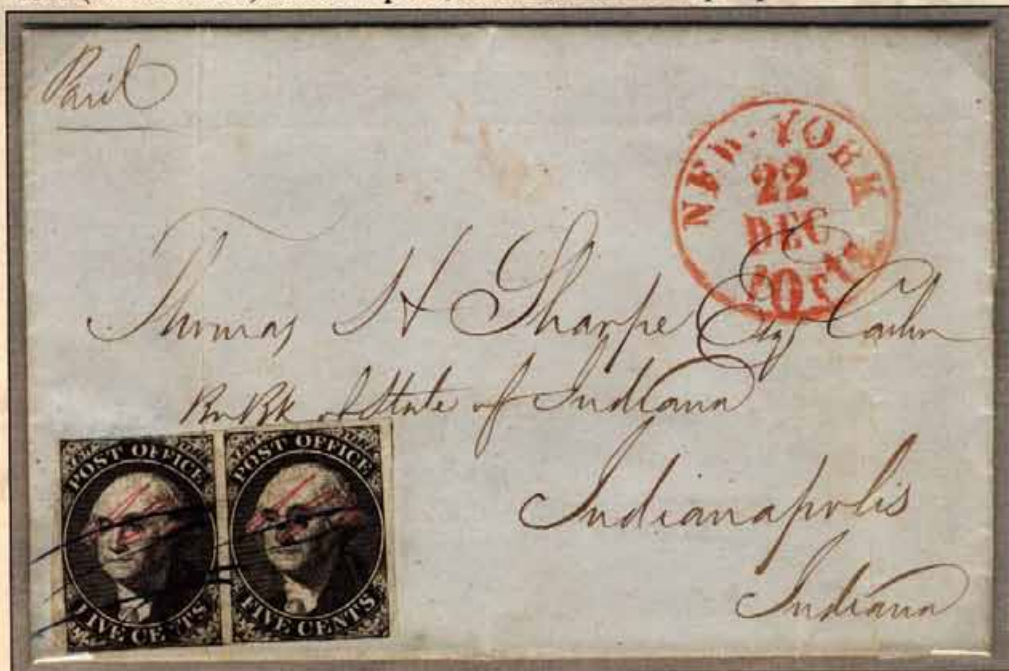 Paid
NEW-YORK
22
DEC
10cts
Thomas H Sharpe Esq Cashr
Br Bk of State of Indiana
Indianapolis
Indiana
POST OFFICE
FIVE CENTS
POST OFFICE
FIVE CENTS